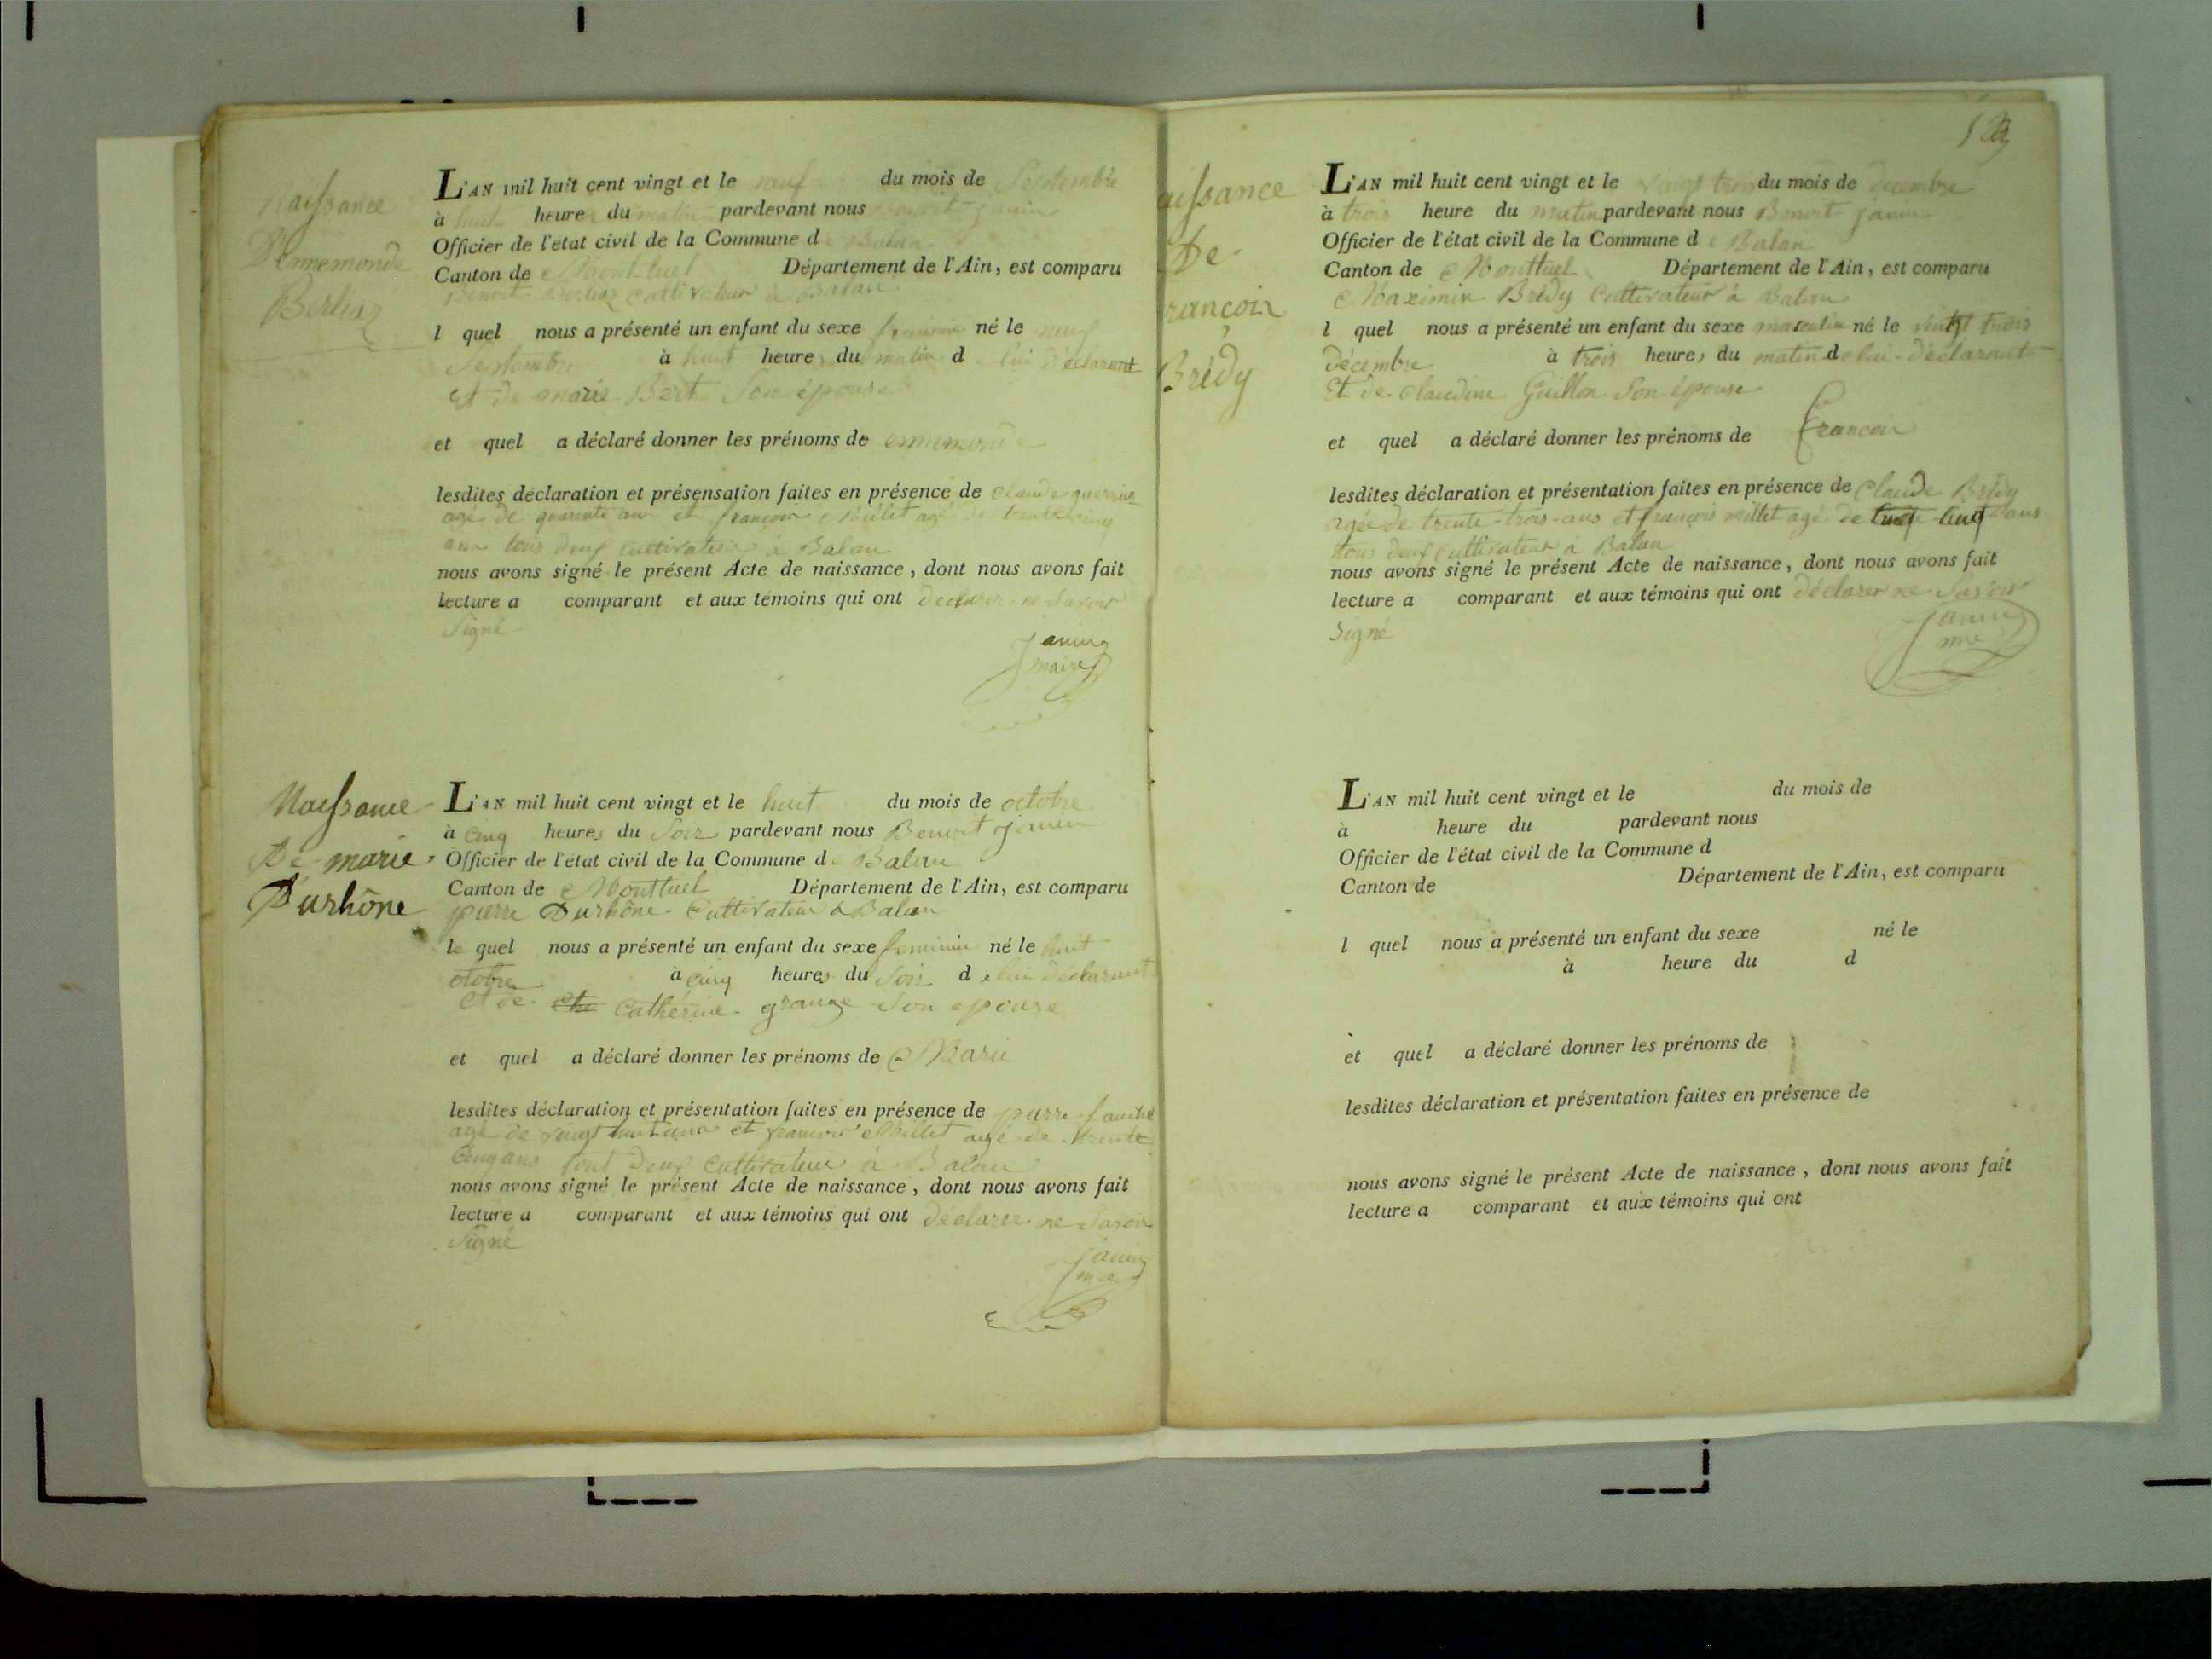 Naissance
D'Ennemonde
Berliaz
L'AN mil huit cent vingt et le neuf du mois de Septembre
à huit heures du matin pardevant nous Benoit janin
Officier de l'etat civil de la Commune de Balan
Canton de Montluel Département de l'Ain, est comparu
Benoit Berliaz Cultivateur à Balan
l quel nous a présenté un enfant du sexe feminin né le neuf
Septembre à huit heures du matin de lui déclarant
et de marie Bert Son épouse
et quel a déclaré donner les prénoms de ennemonde
lesdites déclaration et présensation faites en présence de Claude
agé de quarante ans et françois Millet agé de trente cinq
ans tous deux Cultivateur à Balan
nous avons signé le présent Acte de naissance, dont nous avons fait
lecture a comparant et aux témoins qui ont déclarer ne Savoir
Signé
janin
maire
Naissance
De marie
Durhône
L'AN mil huit cent vingt et le huit du mois de octobre
à Cinq heures du Soir pardevant nous Benoit janin
Officier de l'état civil de la Commune de Balan
Canton de Montluel Département de l'Ain, est comparu
pierre Durhône Cultivateur à Balan
le quel nous a présenté un enfant du sexe feminin né le huit
otobre à cinq heures du Soir de lui déclarant
et de Catherine grange Son epouse
et quel a déclaré donner les prénoms de Marie
lesdites déclaration et présentation faites en présence de pierre
agé de vingt huit ans et françois Millet agé de trente
Cinq ans tout deux Cultivateur à Balan
nous avons signé le présent Acte de naissance, dont nous avons fait
lecture a comparant et aux témoins qui ont déclarer ne Savoir
Signé
janin
mre
aissance
De
rançois
Brédy
L'AN mil huit cent vingt et le vingt trois du mois de decembre
à trois heure du matin pardevant nous Benoit janin
Officier de l'état civil de la Commune de Balan
Canton de Montluel Département de l'Ain, est comparu
Maximin Brédy Cultivateur à Balan
l quel nous a présenté un enfant du sexe masculin né le vingt trois
décembre à trois heures du matin de lui déclarant
Et de Claudine Guillon Son épouse
et quel a déclaré donner les prénoms de françois
lesdites déclaration et présentation faites en présence de Claude Brédy
agée de trente-trois-ans et françois millet agé de cinq ans
tous deux Cultivateur à Balan
nous avons signé le présent Acte de naissance, dont nous avons fait
lecture a comparant et aux témoins qui ont déclarer ne Savoir
Signé
janin
mre
L'AN mil huit cent vingt et le du mois de
à heure du pardevant nous
Officier de l'état civil de la Commune d
Canton de Département de l'Ain, est comparu
l quel nous a présenté un enfant du sexe né le
à heure du d
et quel a déclaré donner les prénoms de
lesdites déclaration et présentation faites en présence de
nous avons signé le présent Acte de naissance, dont nous avons fait
lecture a comparant et aux témoins qui ont